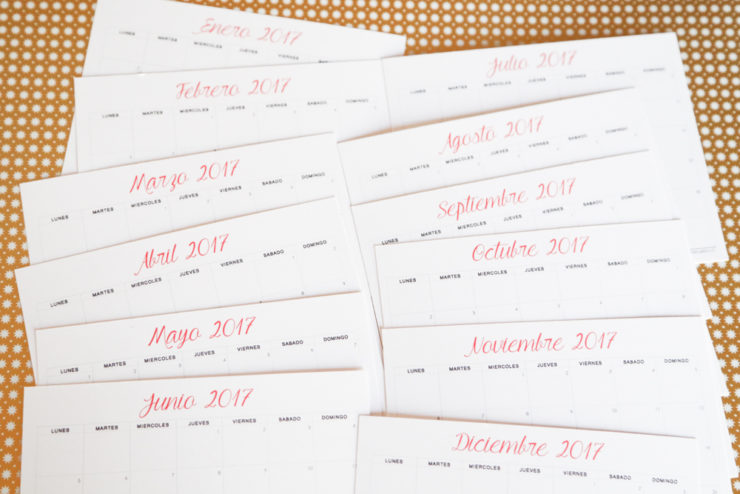 Enero 2017
LUNES MARTES MIERCOLES JUEVES VIERNES
Febrero 2017
LUNES MARTES MIERCOLES JUEVES VIERNES SABADO DOMINGO
Marzo 2017
LUNES MARTES MIERCOLES JUEVES VIERNES SABADO DOMINGO
Abril 2017
LUNES MARTES MIERCOLES JUEVES VIERNES SABADO DOMINGO
Mayo 2017
LUNES MARTES MIERCOLES JUEVES VIERNES SABADO DOMINGO
Junio 2017
LUNES MARTES MIERCOLES JUEVES VIERNES SABADO DOMINGO
Julio 2017
LUNES MARTES MIERCOLES JUEVES VIERNES SABADO DOMINGO
Agosto 2017
LUNES MARTES MIERCOLES JUEVES VIERNES SABADO DOMINGO
Septiembre 2017
LUNES MARTES MIERCOLES JUEVES VIERNES SABADO DOMINGO
Octubre 2017
LUNES MARTES MIERCOLES JUEVES VIERNES SABADO DOMINGO
Noviembre 2017
LUNES MARTES MIERCOLES JUEVES VIERNES SABADO DOMINGO
Diciembre 2017
LUNES MARTES MIERCOLES JUEVES VIERNES SABADO DOMINGO